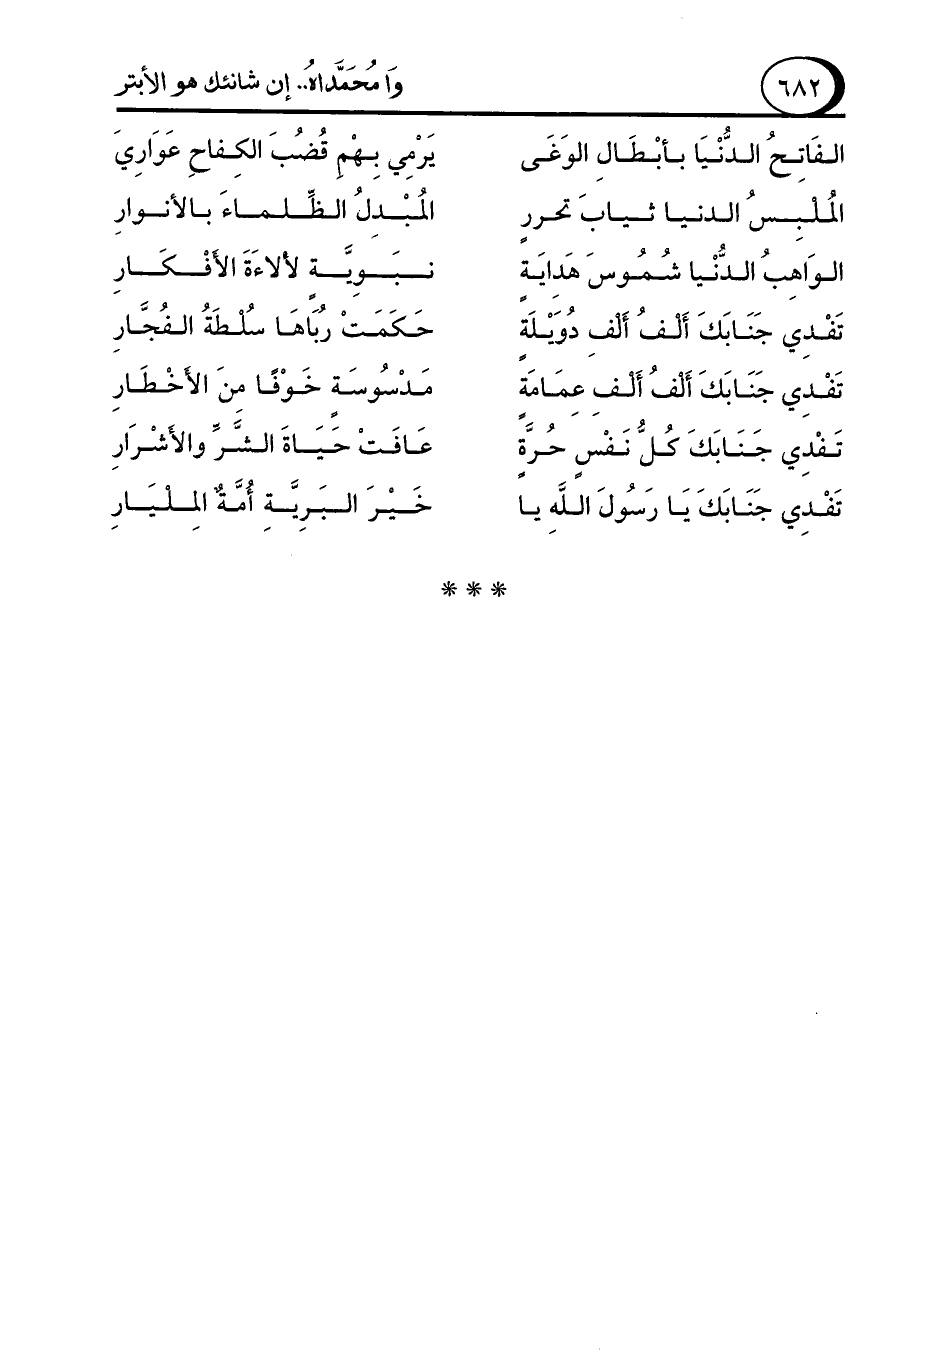 ٦٨٢ وَا مُحَمَّدَاهُ.. إن شانئك هو الأبتر
الفَاتِحُ الدُّنْيَا بِأبْطَالِ الوَغَى يَرْمِي بِهْمِ قُضُبَ الكِفاحِ عَوَارِيَ
المُلْبِسُ الدنيا ثيابَ تحررٍ المُبْدِلُ الظَّلماءَ بالأنوارِ
الوَاهِبُ الدُّنْيا شُمُوسَ هَدَايَةٍ نَبَوِيَّةٍ لألاءَةَ الأفْكَارِ
تَفْدِي جَنَابَكَ ألفُ ألْفِ دُوَيْلَةٍ حَكَمَتْ رُبَاهَا سُلْطَةُ الفُجَّارِ
تَفْدِي جَنَابَكَ ألفُ ألْفِ عِمَامَةٍ مَدْسُوسَةٍ خَوْفًا مِنَ الأخْطَارِ
تَفْدِي جَنَابَكَ كُلُّ نَفْسٍ حُرَّةٍ عَافَتْ حَيَاةَ الشَّرِّ والأشْرَارِ
تَفْدِي جَنَابَكَ يَا رَسُولَ اللَّهِ يا خَيْرَ البَرِيَّةِ أُمَّةُ المِلْيَارِ
* * *